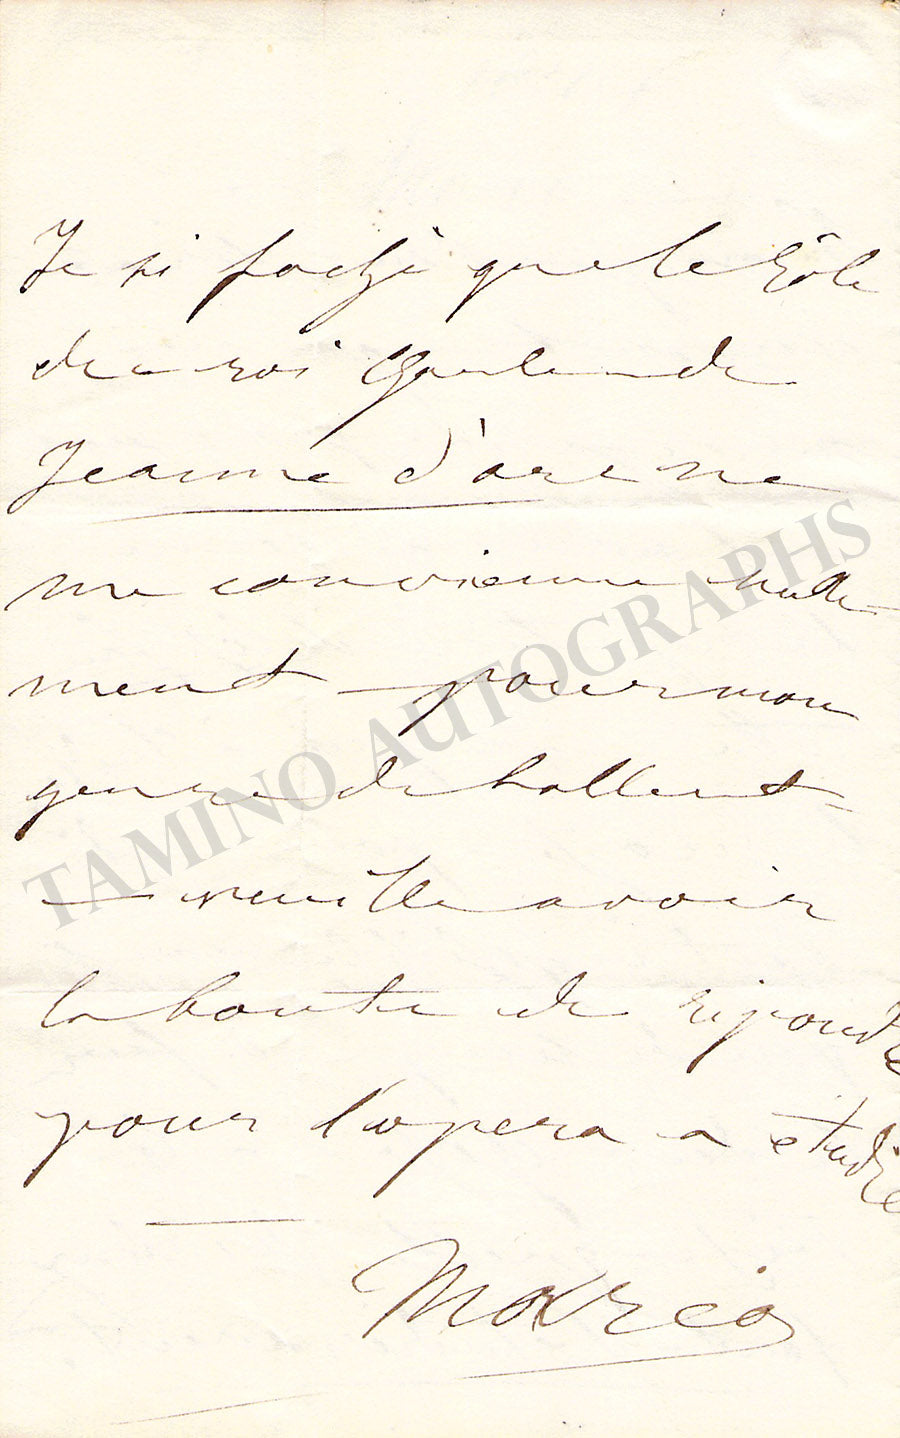 Je si fache que le rôle
du roi Charle de
Jeanne d'arc ne
me convienne nulle-
ment pour mon
genre de tallent-
— veuille avoir
la bonte de repondre
pour l'opera a étudié
Mario
TAMINO AUTOGRAPHS